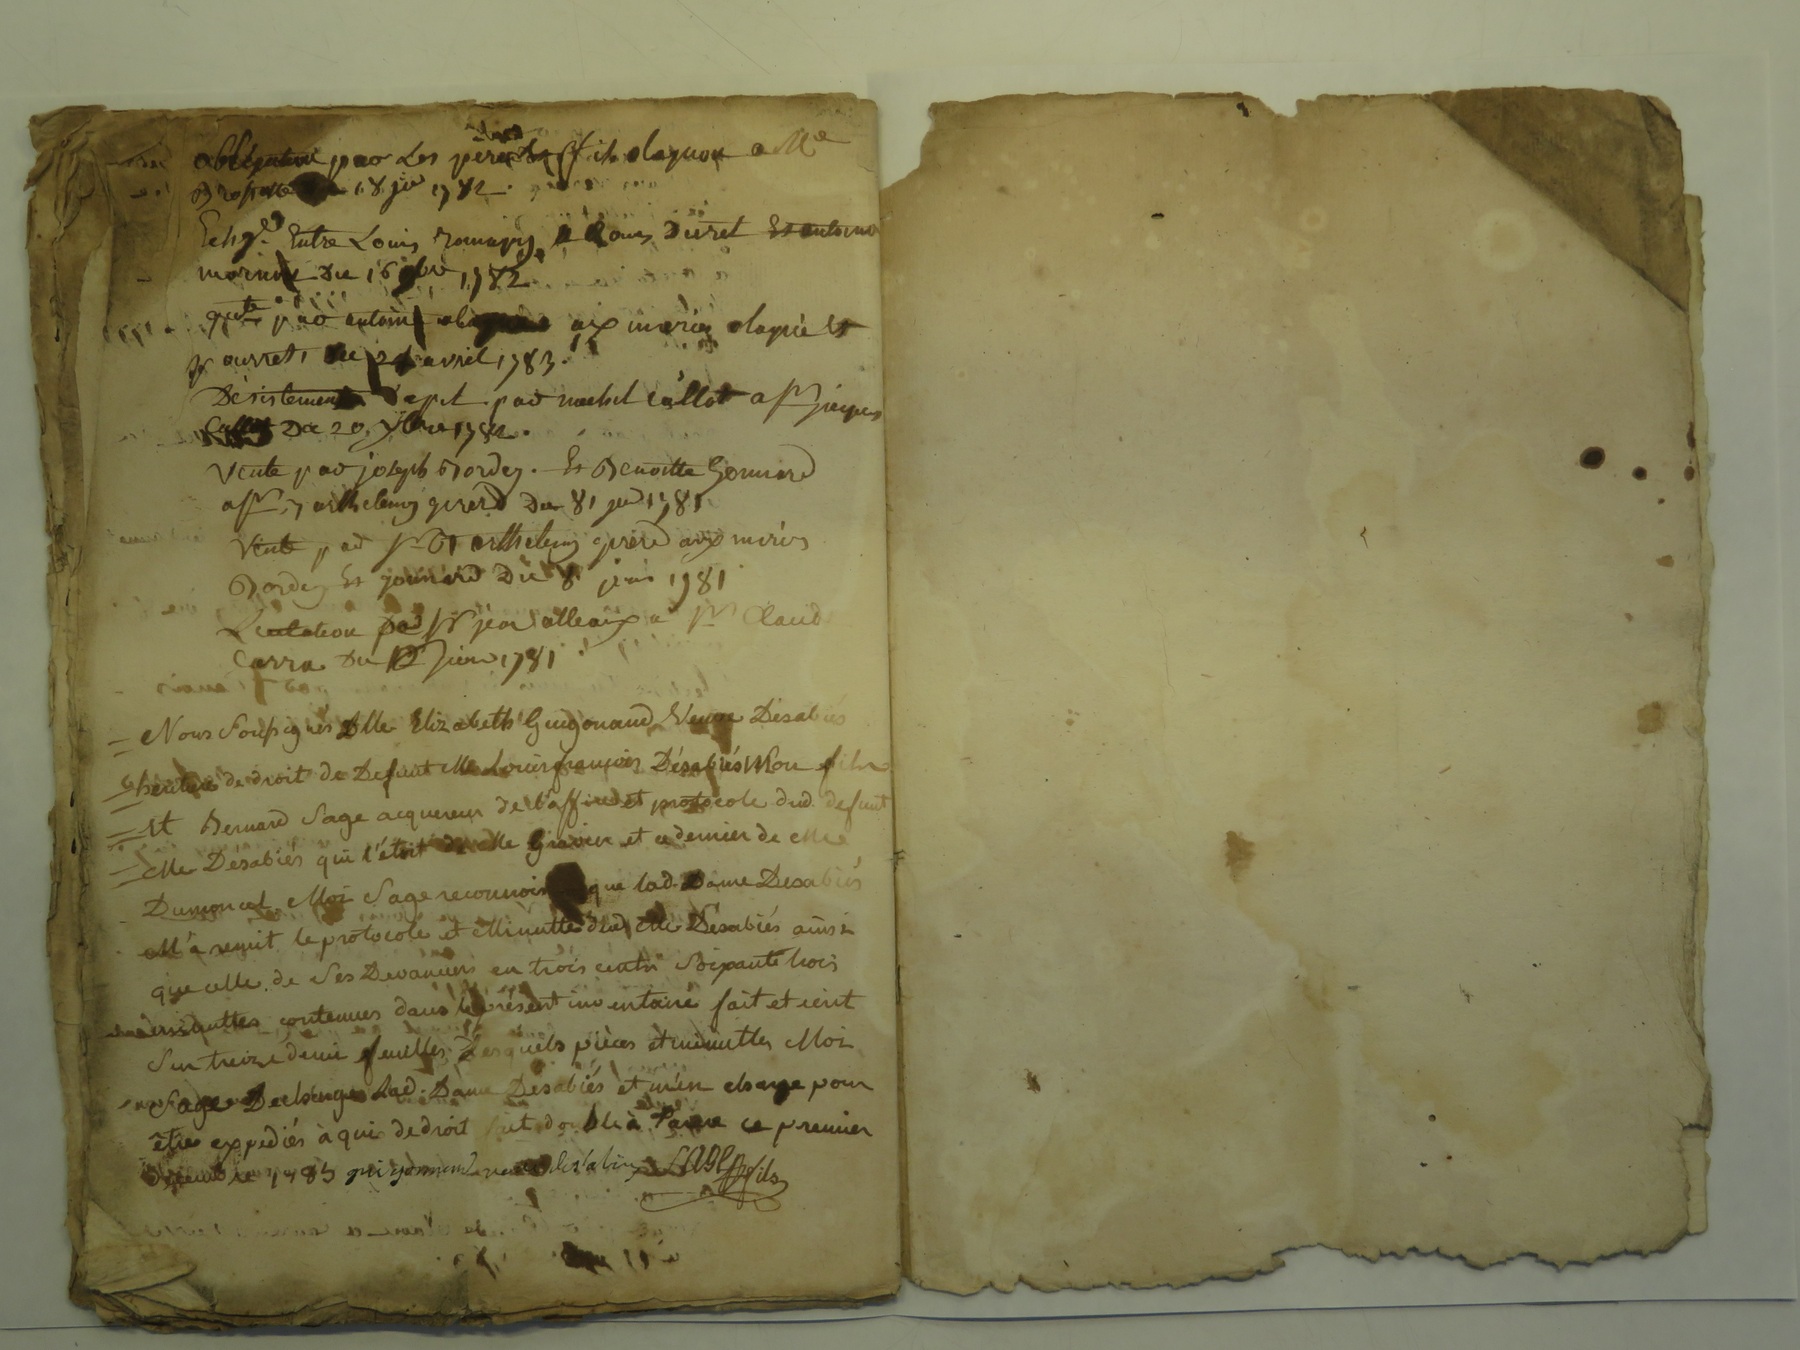 obligation par Les père et fils dagnon a Me
18 jer 1782.
Echge. Entre Louis Romagny & Louis Duret Et antoine
morin Du 16 9bre 1782
qtte par antoine aux mariés dagnié Et
Pourret du avril 1783.
Désistement d'apel par michel Callot a Sr jacques
Callot Du 20 1782.
Vente par joseph Bordey. Et Benoitte Gonnard
a Sr. Barthelemy girerd Du 81 1781
Vente par Sr Barthelemy girerd aux mariés
Bordey Et gonnard Du 8 1781
par Sr jean alleaix a Sr Claude
Carra Du 1781.
Nous Soussignés Dlle Elizabeth Guigonand Veuve Désabiés
héritiere de droit de Defunt Me Louis françois Désabiés Mon fils
Et Bernard Sage acquereur de l'office et protocole dud. defunt
Me Désabiés qui l'étoit de Me Gravier et ce dernier de Me
Dumoncel. Moi Sage reconnois que lad. Dame Desabiés
M'a remit le protocole et Minutte dud. Me Désabiés ainsi
que celle de Ses Devanciers en trois cents Soixante trois
minuttes contenues dans le présent inventaire fait et écrit
Sur treize demi feuilles Desquels pièces et minuttes Moi
Sage Decharge Lad. Dame Desabiés et m'en charge pour
être expediés à qui de droit fait double à ce premier
Décembre 1783 guigonand veuve desabiez SAGE fils